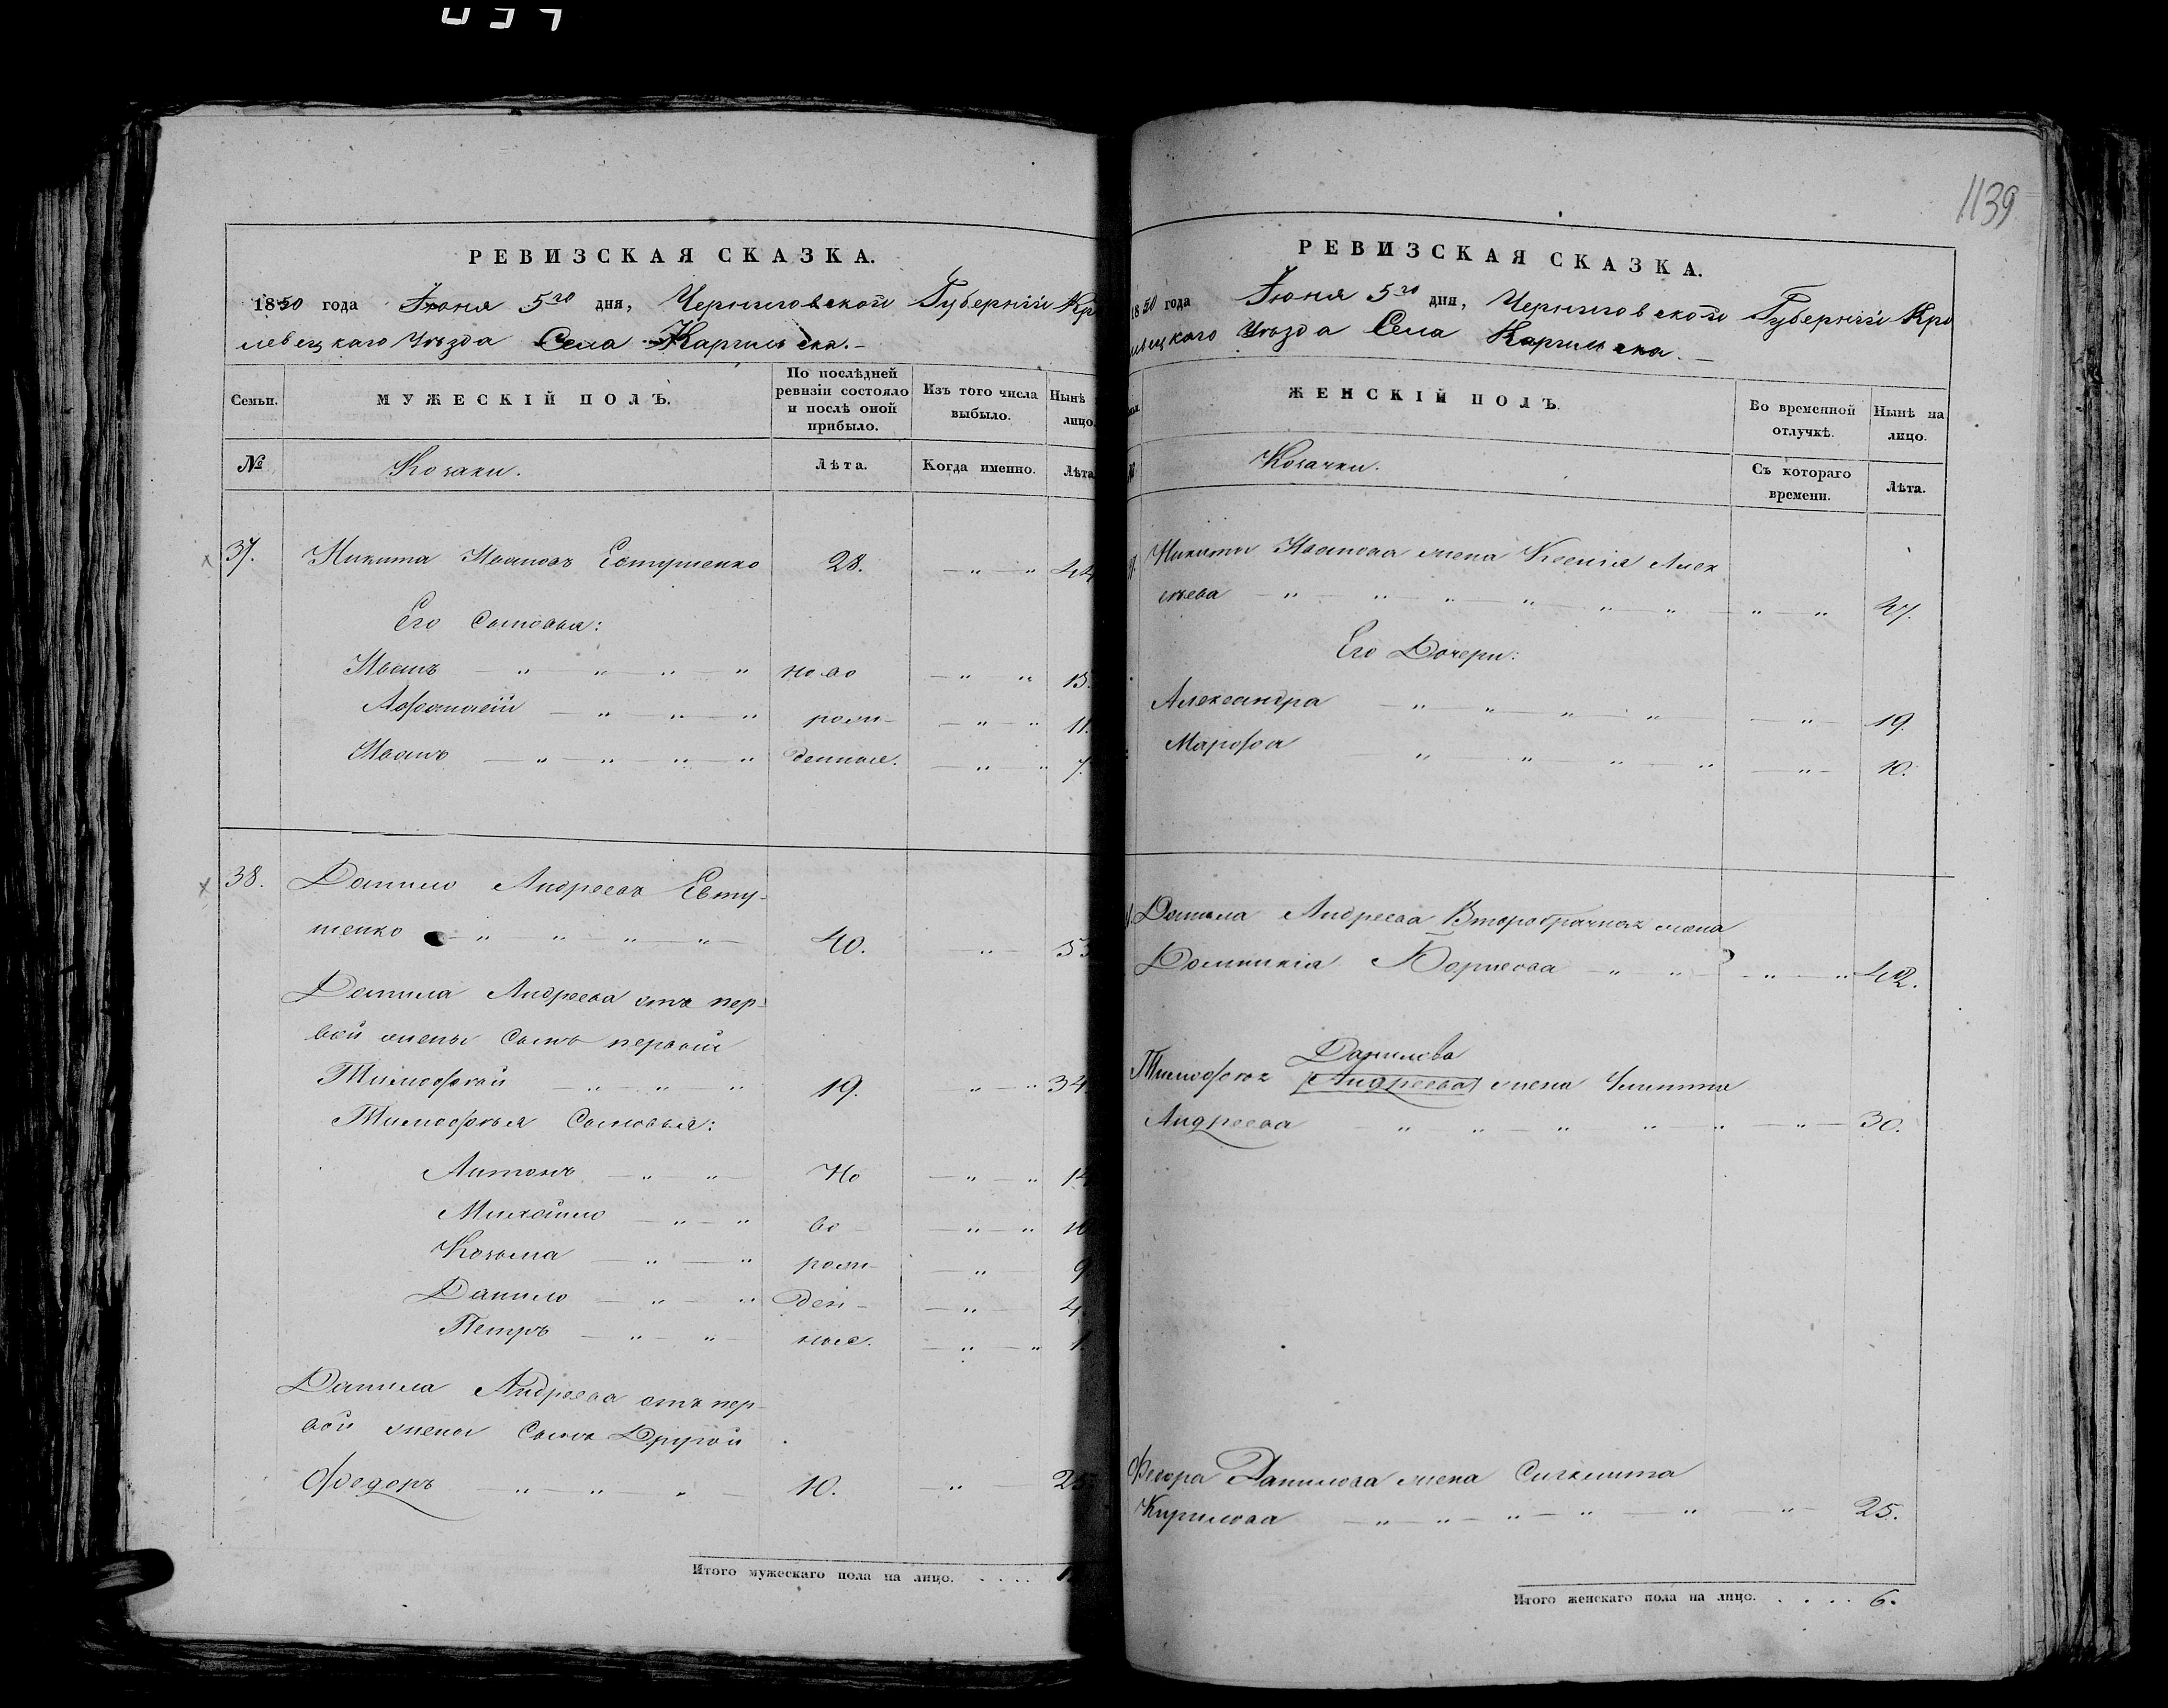 РЕВИЗСКАЯ СКАЗКА.
1850 года Іюня 5го дня, Черниговской Губерніи Кро
левецкаго Уѣзда Села Каргилска.
Семьи.
МУЖЕСКІЙ ПОЛЪ.
По послѣдней ревизіи состояло и послѣ оной прибыло.
Изъ того числа выбыло.
Нынѣ лицо.
№
Козаки.
Лѣта.
Когда именно.
Лѣта
37. Никита Ивановъ Евтушенко 28. 44
Его Сыновья:
Иванъ ново 13.
Афанасій рож- 11.
Иванъ денные. 7.
38. Данило Андреевъ Евту-
шенко 40. 55
Данила Андреева отъ пер-
вой жены Сынъ первый
Тимофѣй 19. 34.
Тимофѣя Сыновья:
Антонъ Но 14
Михайло во 10
Козьма рож- 9
Данило ден- 4.
Петръ ные. 1.
Данила Андреева отъ пер-
вой жены Сынъ Другой
Федоръ 10. 25
Итого мужескаго пола на лицо.
1139
РЕВИЗСКАЯ СКАЗКА.
1850 года Іюня 5го дня, Черниговской Губерніи Кро
левецкаго Уѣзда Села Каргилска.
ЖЕНСКІЙ ПОЛЪ.
Во временной отлучкѣ.
Нынѣ на лицо.
Козачки.
Съ котораго времени.
Лѣта.
Никиты Иванова жена Ксенія Алек
сѣева 47.
Его Дочери:
Александра 19.
Марфа 10.
Данила Андреева Второбрачная жена
Домникія Борисова 42.
Данилова
Тимофея Андреева жена Улита
Андреева 30.
Федора Данилова жена
Кирилова 25.
Итого женскаго пола на лицо. 6.